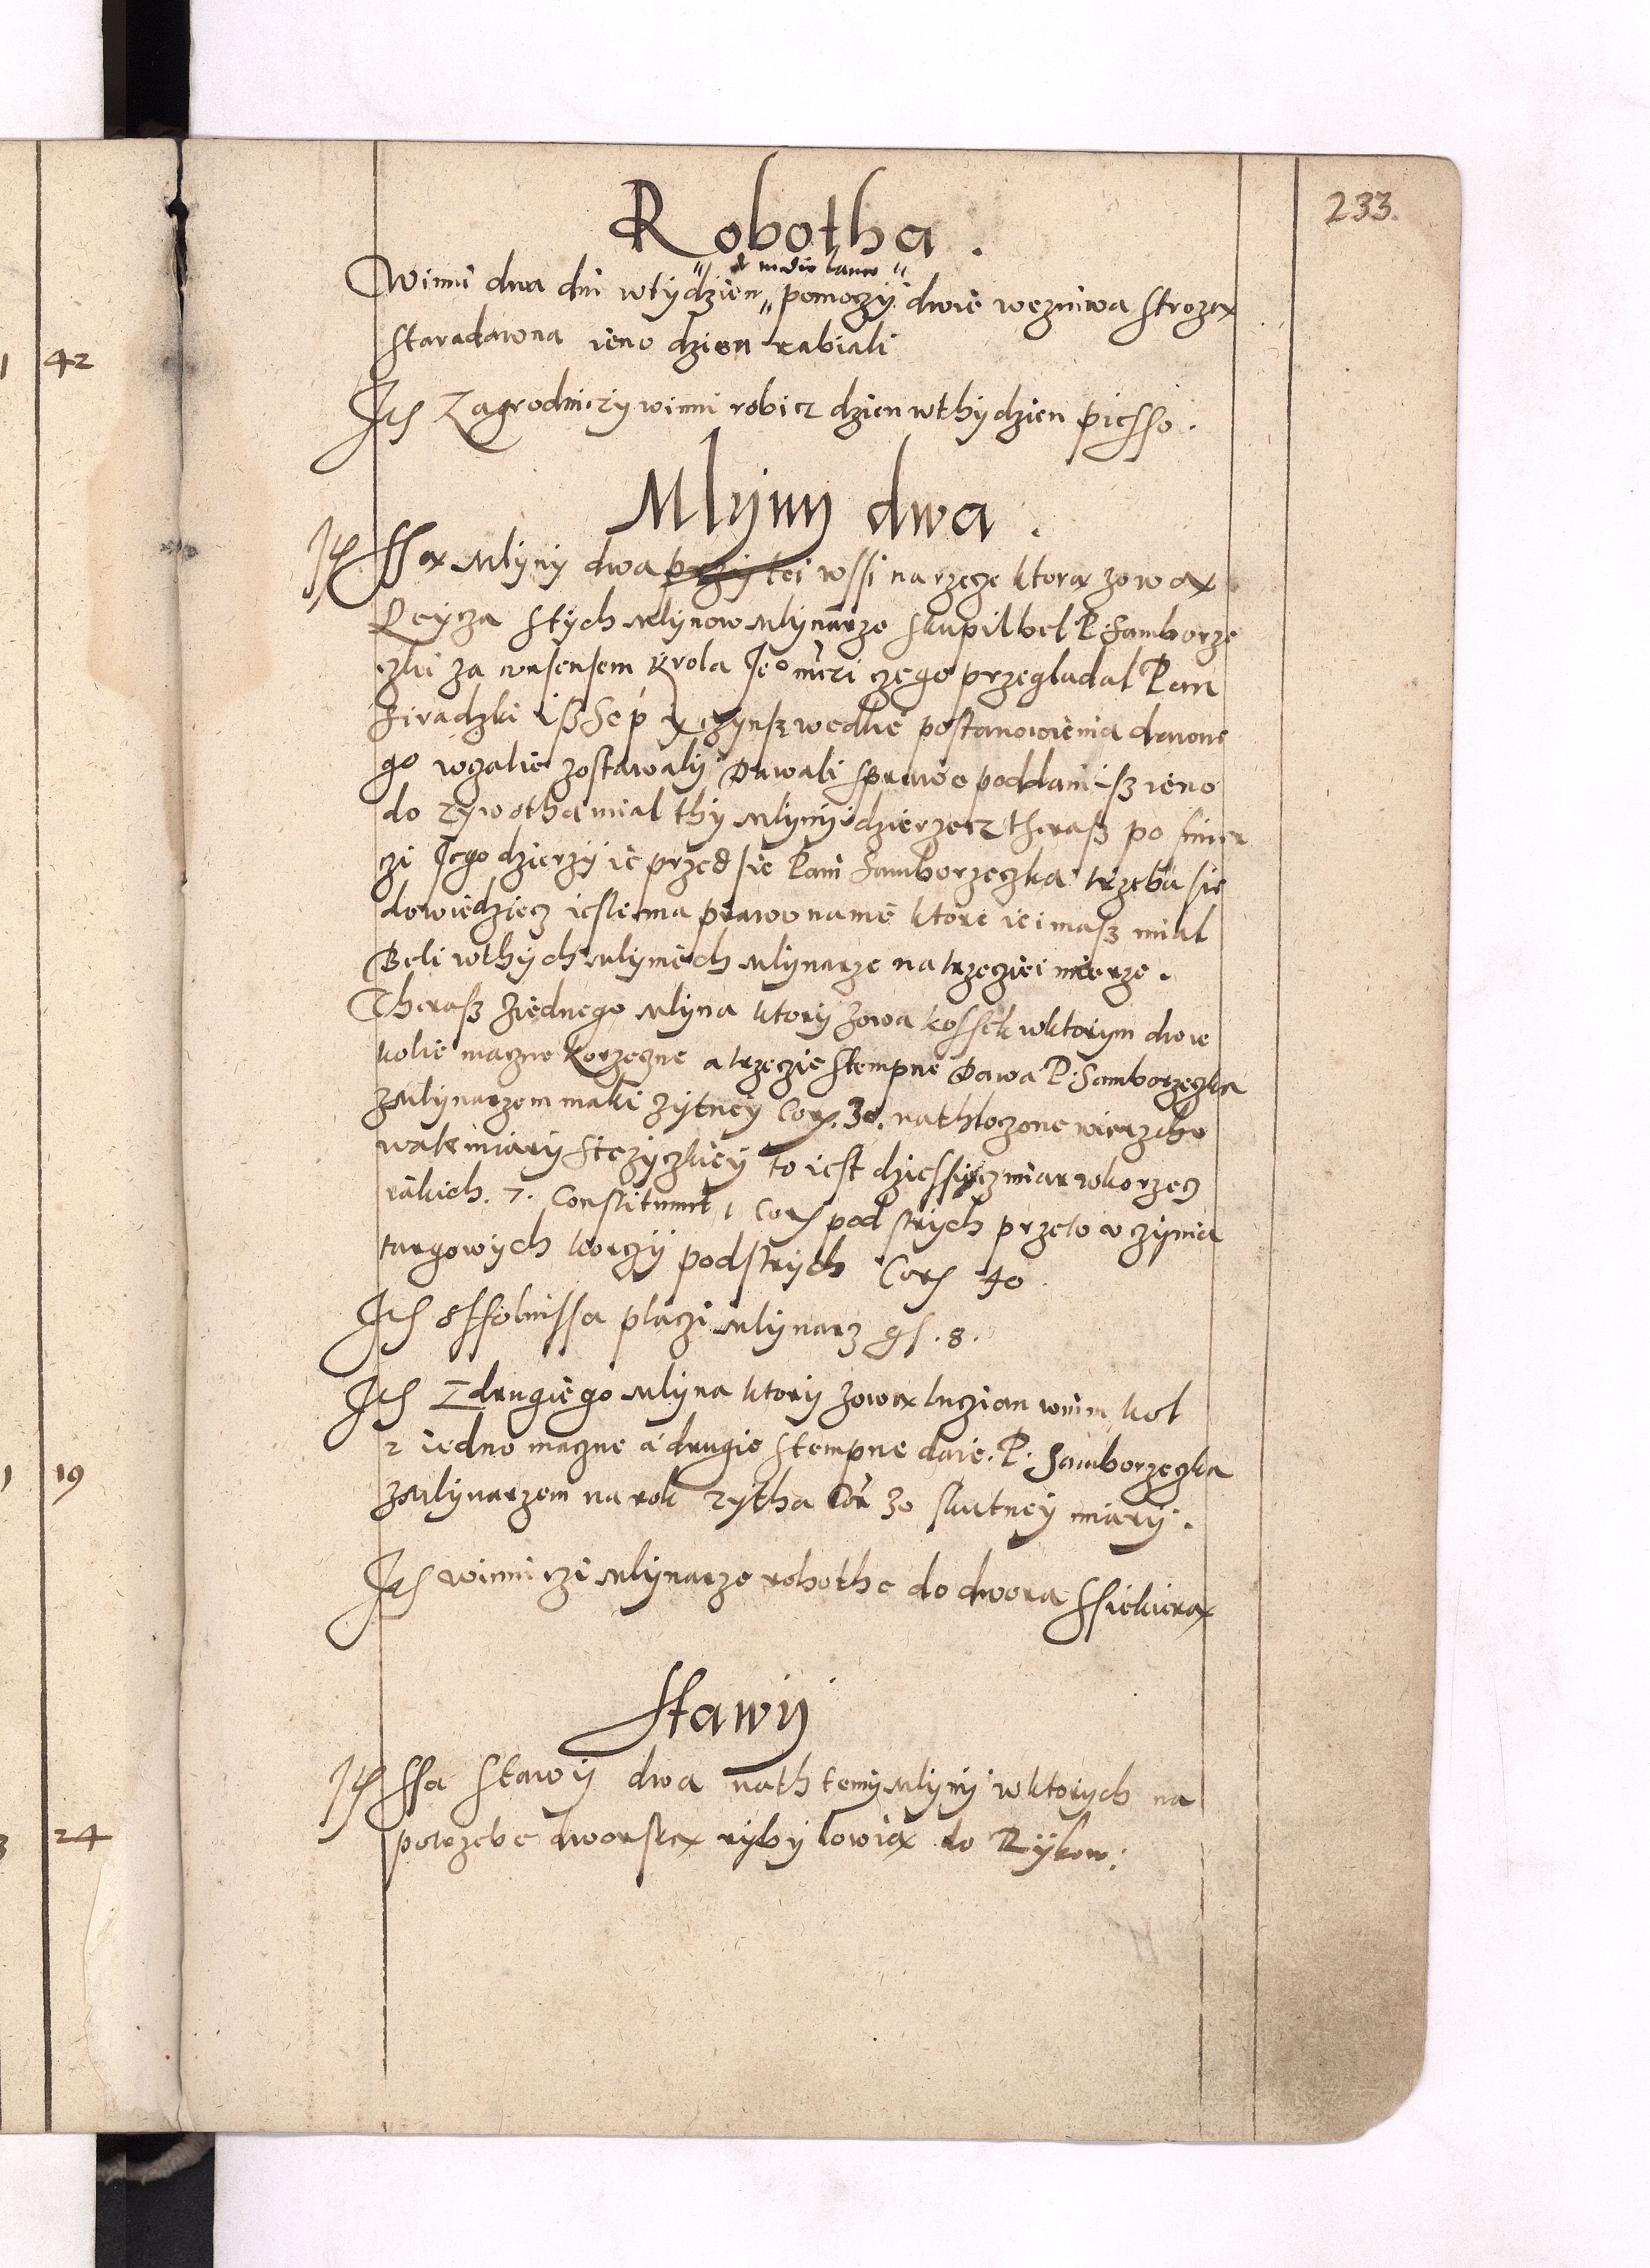 233.
Robotha.
de medio laneo
Winni dwa dni wtydzien pomoczy dwie wezniwa strozą
staradawna ieno dzien rabiali
Itē Zagrodniczy winni robicz dzien wthydzien piesso.
Mlijny dwa.
Itē Ssą Mlyny dwa przy tei wssi na rzecze ktorą zową
stych Mlynow Mlynarze skupil bel P. Samborze
czki za consensem Krola Jeo mczi czego przegladal Pan
Siradzki isz Sep y czynsz wedlie postanowienia dawne
go wczalie zostawaly Dawali sprawe poddani isz ieno
do zywotha mial thy Mlyny dzierzecz theraz po smier
czi Jego dzierzy ie przed sie Pani Samborzeczka trzeba sie
dowiedziecz iesli ma prawo na nie ktore iei masz mial
Beli wthych Mlyniech Mlynarze na trzeciei mierze.
Therasz ziednego Mlyna ktory zowa kossek wktorym dwie
kolie maczne korzeczne a trzeczie stempne Dawa P. Samborzeczka
zMlynarzem maki zytney Cor. 30. nathloczone wierzcho
wate miary stezyczkiey to iest dziessięcz miar wkorzecz
rakich. 7. Constituunt 1 Cor pod strych przeto wczynia
targowych korczy podstrych Cor 40.
Itē placzi Mlynarz gs. 8.
Itē Z drugiego Mlyna ktory zową luczian wnim kol
2 iedno maczne a drugie stempne daie. P. Samborzeczka
zMlynarzem na rok zytha Cor 30 skutney miary.
Itē winni czi Mlynarze robothe do dwora ssiekierą
Stawy
Itē Ssa Stawy dwa nath temy Mlyny wktorych na
potrzebe dworską ryby lowią do Rykow:
42
19
24